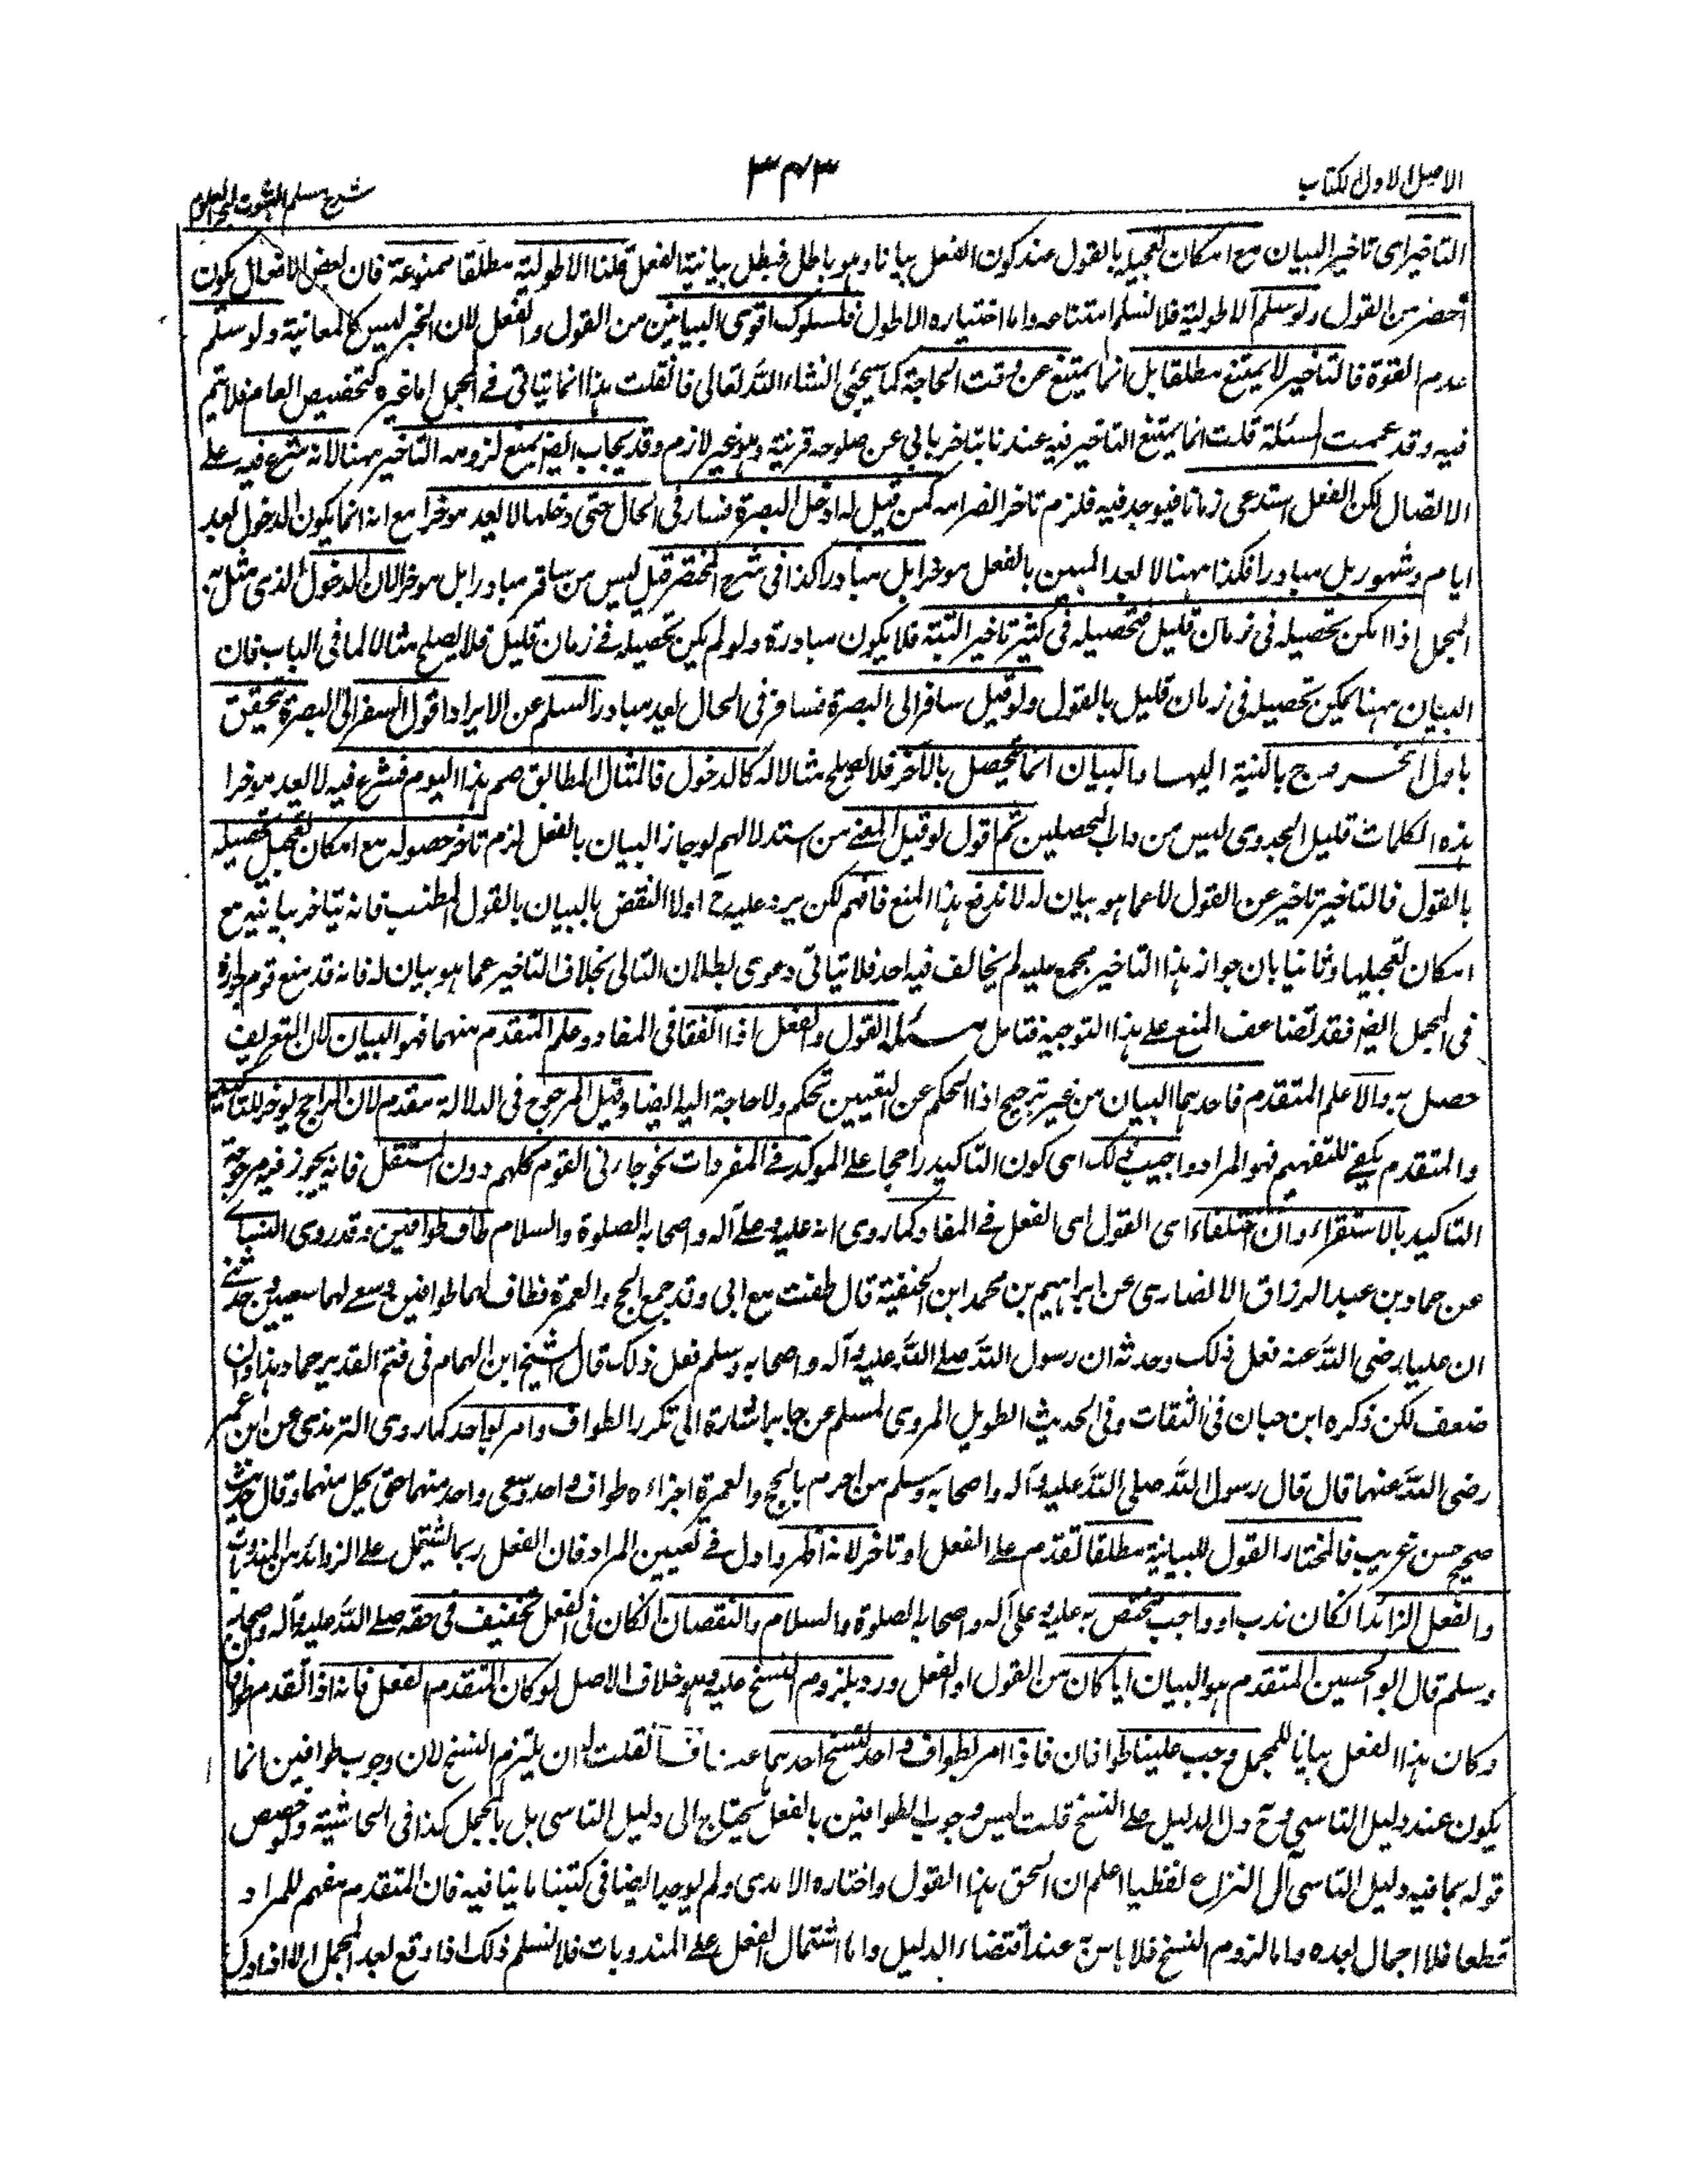 الاصل الاول الکتاب
۳۴۳
شرح مسلم الثبوت لبحر العلوم
التاخیر ای تاخیر البیان مع امکان تعجیله بالقول عند کون الفعل بیانا وهو باطل فبطل بیانیة الفعل قلنا الاطولیة مطلقا ممنوعة فان بعض الافعال یکون
اخصر من القول ولو سلم الاطولیة فلا نسلم امتناعه واما اختیاره الاطول فلسلوک اقوی البیانین من القول والفعل لان الخبر لیس کالمعاینة ولو سلم
عدم القوة فالتاخیر لا یمتنع مطلقا بل انما یمتنع عن وقت الحاجة کما سیجئی انشاء الله تعالی فانقلت هذا انما یتاتی فے المجمل اما غیره کتخصیص العام فلا یتم
فیه وقد عممت المسئلة قلت انما یمتنع التاخیر فیه عندنا بتاخر یابی عن صلوحه قرینة وهو غیر لازم وقد یجاب ایضا بمنع لزومه التاخیر ههنا لانه شرع فیه علے
الاتصال لکن الفعل استدعی زمانا فیوجد فیه فلزم تاخر انصرامه کمن قیل له ادخل البصرة فسار فی الحال حتی دخلها لا یعد موخرا مع انه انما یکون الدخول بعد
ایام وشهور بل مبادرا فکذا ههنا لا یعد المبین بالفعل موخرا بل مبادرا کذا فی شرح المختصر قیل لیس من سافر مبادرا بل موخرا لان الدخول الذی مثل به
المجمل اذا امکن تحصیله فی زمان قلیل فتحصیله فی کثیر تاخیر البتة فلا یکون مبادرة ولو لم یکن تحصیله فے زمان قلیل فلا یصلح مثالا لما فی الباب فان
البیان ههنا یمکن تحصیله فی زمان قلیل بالقول ولو قیل سافر الی البصرة فسافر فی الحال یعد مبادرا لسلم عن الایراد اقول السفر الی البصرة یتحقق
باول الخروج بالنیة الیها والبیان انما یحصل بالآخر فلا یصلح مثالا له کالدخول فالمثال المطابق صم هذا الیوم فشرع فیه لا یعد موخرا
هذه الکلمات قلیل الجدوی لیس من داب المحصلین ثم اقول لو قیل المعنے من استدلالهم لو جاز البیان بالفعل لزم تاخر حصوله مع امکان تعجیل تحصیله
بالقول فالتاخیر تاخیر عن القول لا عما هو بیان له لاندفع هذا المنع فافهم لکن یرد علیه ح اولا النقض بالبیان بالقول المطنب فانه یتاخر بیانیه مع
امکان تعجیلها وثانیا بان جوازه هذا التاخیر مجمع علیه لم یخالف فیه احد فلا یتاتی دعوی بطلان التالی بخلاف التاخیر عما هو بیان له فانه قد منع قوم جوازه
فی المجمل ایضا فقد تضاعف المنع علے هذا التوجیه فتامل مسئلة القول والفعل اذا اتفقا فی المفاد وعلم المتقدم منهما فهو البیان لان التعریف
حصل به والا علم المتقدم فاحدهما البیان من غیر ترجیح اذا الحکم عن التعیین تحکم ولا حاجة الیه ایضا وقیل المرجوح فی الدلالة مقدم لان الراجح یوخر للتاکید
والمتقدم یکفے للتفهیم فهو المراد واجیب ذلک ای کون التاکید راجحا علے الموکد فے المفردات نحو جارنی القوم کلهم دون المستقل فانه یجوز فیه مرجوحیة
التاکید بالاستقراء وان اختلفا ای القول ای الفعل فے المفاد کما روی انه علیه وعلے آله واصحابه الصلوة والسلام طاف طوافین وقد روی النسائے
عن حماد بن عبد الرزاق الانصاری عن ابراهیم بن محمد ابن الحنفیة قال طفت مع ابی وقد جمع الحج والعمرة فطاف لهما طوافین وسعے لهما سعیین وحدثنے
ان علیا رضی الله عنه فعل ذلک وحدثه ان رسول الله صلے الله علیه وآله واصحابه وسلم فعل ذلک قال الشیخ ابن الهمام فی فتح القدیر حماد هذا وان
ضعف لکن ذکره ابن حبان فی الثقات وفی الحدیث الطویل المروی لمسلم عن جابر اشارة الی تکرر الطواف وامر بواحد کما روی الترمذی عن ابن عمر
رضی الله عنهما قال قال رسول الله صلی الله علیه وآله واصحابه وسلم من احرم بالحج والعمرة اجزاءه طواف واحد وسعی واحد منهما حتی یحل منهما وقال حدیث
صحیح حسن غریب فالمختار القول للبیانیة مطلقا تقدم علے الفعل او تاخر لانه اظهر وادل فے تعیین المراد فان الفعل ربما یشتمل علے الزوائد من المندوبات
والفعل الزائد الکان ندب او واجب مختص به علیه وعلی آله واصحابه الصلوة والسلام والنقصان الکان فی الفعل تخفیف فی حقه صلے الله علیه وآله واصحابه
وسلم قال ابو الحسین المتقدم هو البیان ایا کان من القول او الفعل ورد بلزوم النسخ علیه وهو خلاف الاصل لو کان المتقدم الفعل فانه اذا تقدم طوافان
وکان هذا الفعل بیانا للمجمل وجب علینا طوافان فاذا امر بطواف واحد نسخ احدهما عنا فانقلت له ان یلتزم النسخ لان وجوب طوافین انما
یکون عند دلیل التاسی وح دل الدلیل علے النسخ قلت لیس وجوب الطوافین بالفعل یحتاج الی دلیل التاسی بل بالمجمل کذا فی الحاشیة ولو خصص
قوله بما فیه دلیل التاسی آل النزاع لفظیا اعلم ان الحق هذا القول واختاره الامدی ولم یوجد ایضا فی کتبنا ما ینافیه فان المتقدم مفهم للمراد
قطعا فلا اجمال بعده واما لزوم النسخ فلا باس به عند اقتضاء الدلیل واما اشتمال الفعل علے المندوبات فلا نسلم ذلک اذا وقع بعد المجمل الا اذا دل